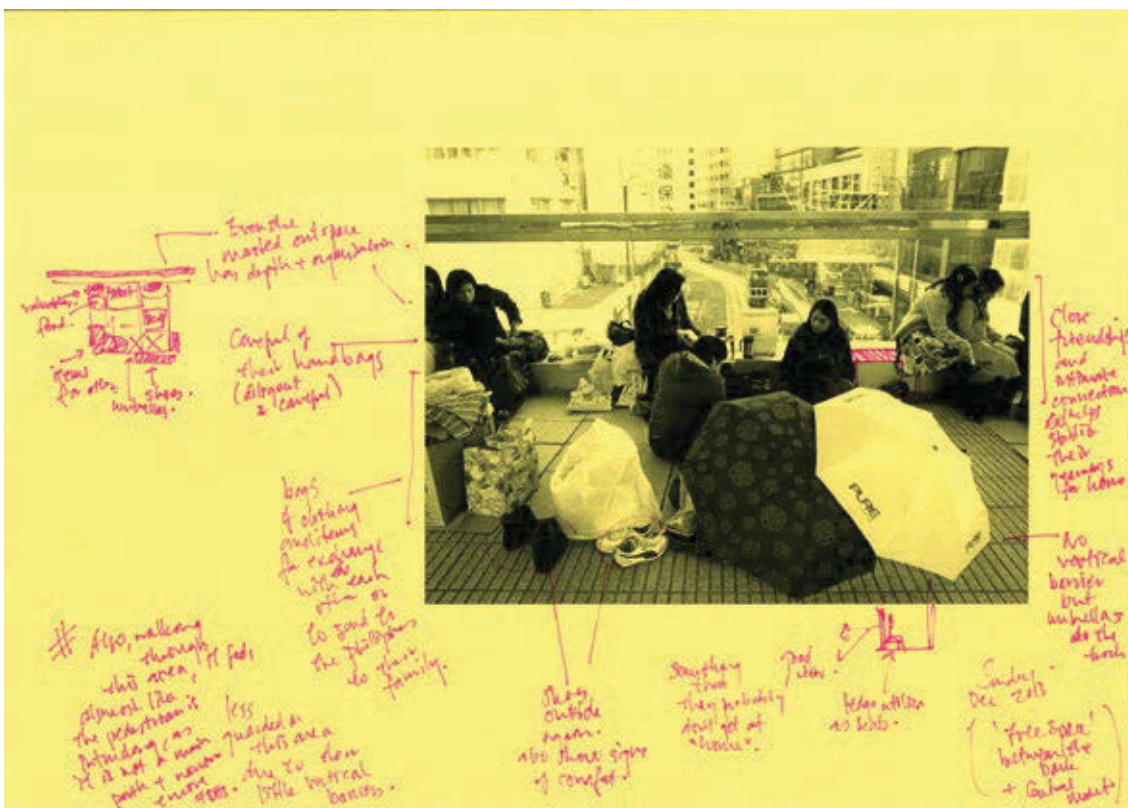 Even the
marked out space
has depth + organisation.
valuables
food.
items
for other
umbrellas.
shoes
Careful of
their handbags
(elegant
& careful)
bags
of clothing
and items
for exchange
with each
other or
to send to
the Philippines
to their
family.
# Also, walking
through
this area, it feels
almost like
the pedestrian is
intruding (as
it is not a main
path +
less
guarded
this area
due to
little vertical
barriers.
shoes
outside
also shows signs
of comfort.
Something
that
they probably
don't get at
"home".
good
views
ledge utilised
as seats.
Close
friendships
and
intimate
connection
helps
their
for home
No
vertical
border
but
umbrellas
do the
work
Sunday
Dec 2013
('free space'
between the
bank
+ Central
Market)
環
保
PURE